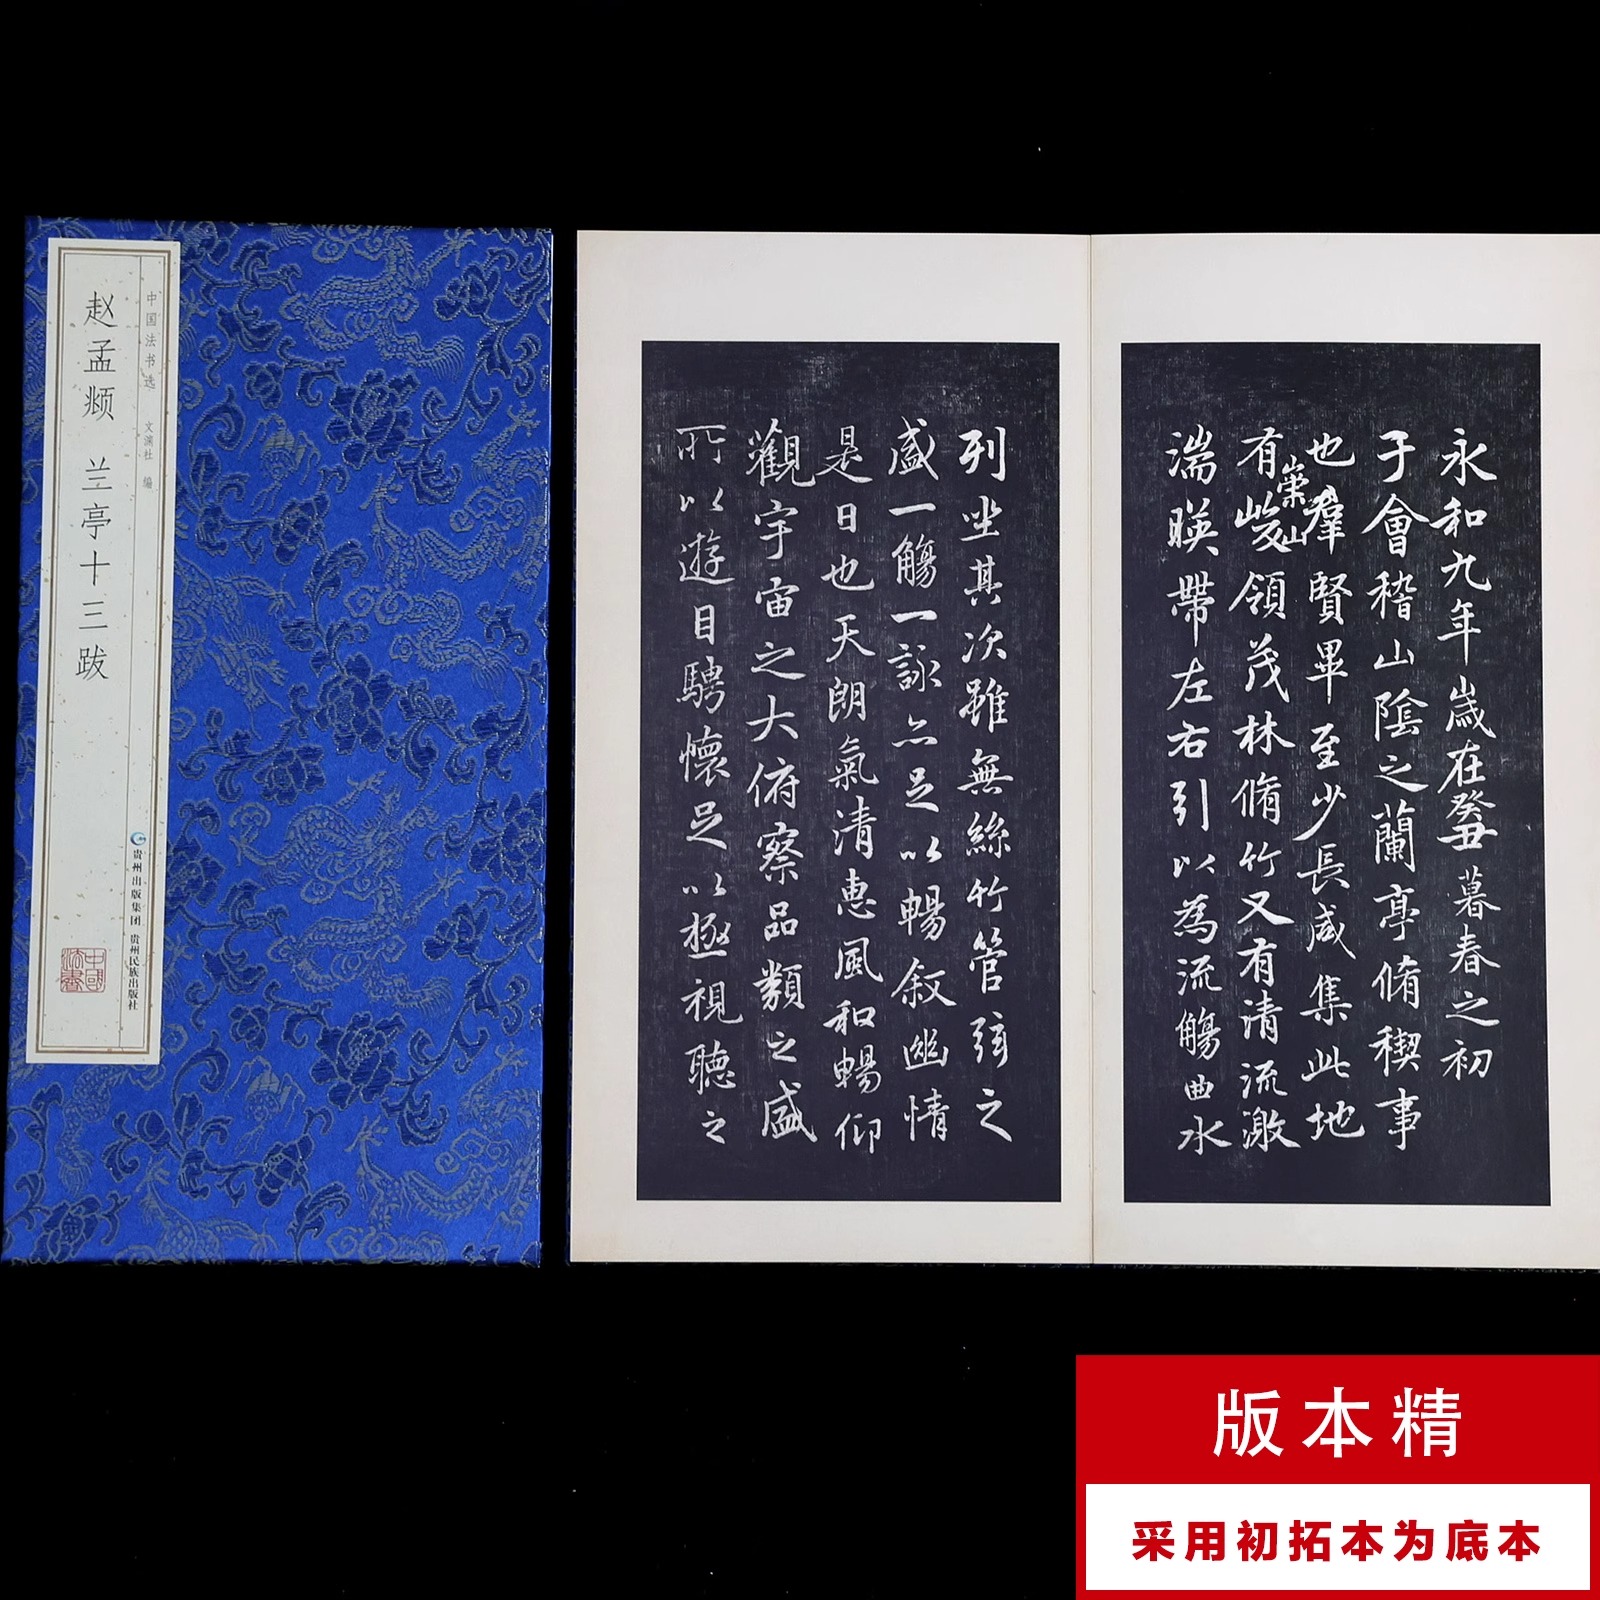 中国法书选 文渊社 编
赵孟頫 兰亭十三跋
贵州出版集团 贵州民族出版社
中國法書
永和九年歲在癸丑暮春之初
于會稽山陰之蘭亭脩稧事
也羣賢畢至少長咸集此地
有崇山峻領茂林脩竹又有清流激
湍暎帶左右引以為流觴曲水
列坐其次雖無絲竹管弦之
盛一觴一詠亦足以暢叙幽情
是日也天朗氣清惠風和暢仰
觀宇宙之大俯察品類之盛
所以遊目騁懷足以極視聽之
版本精
采用初拓本为底本